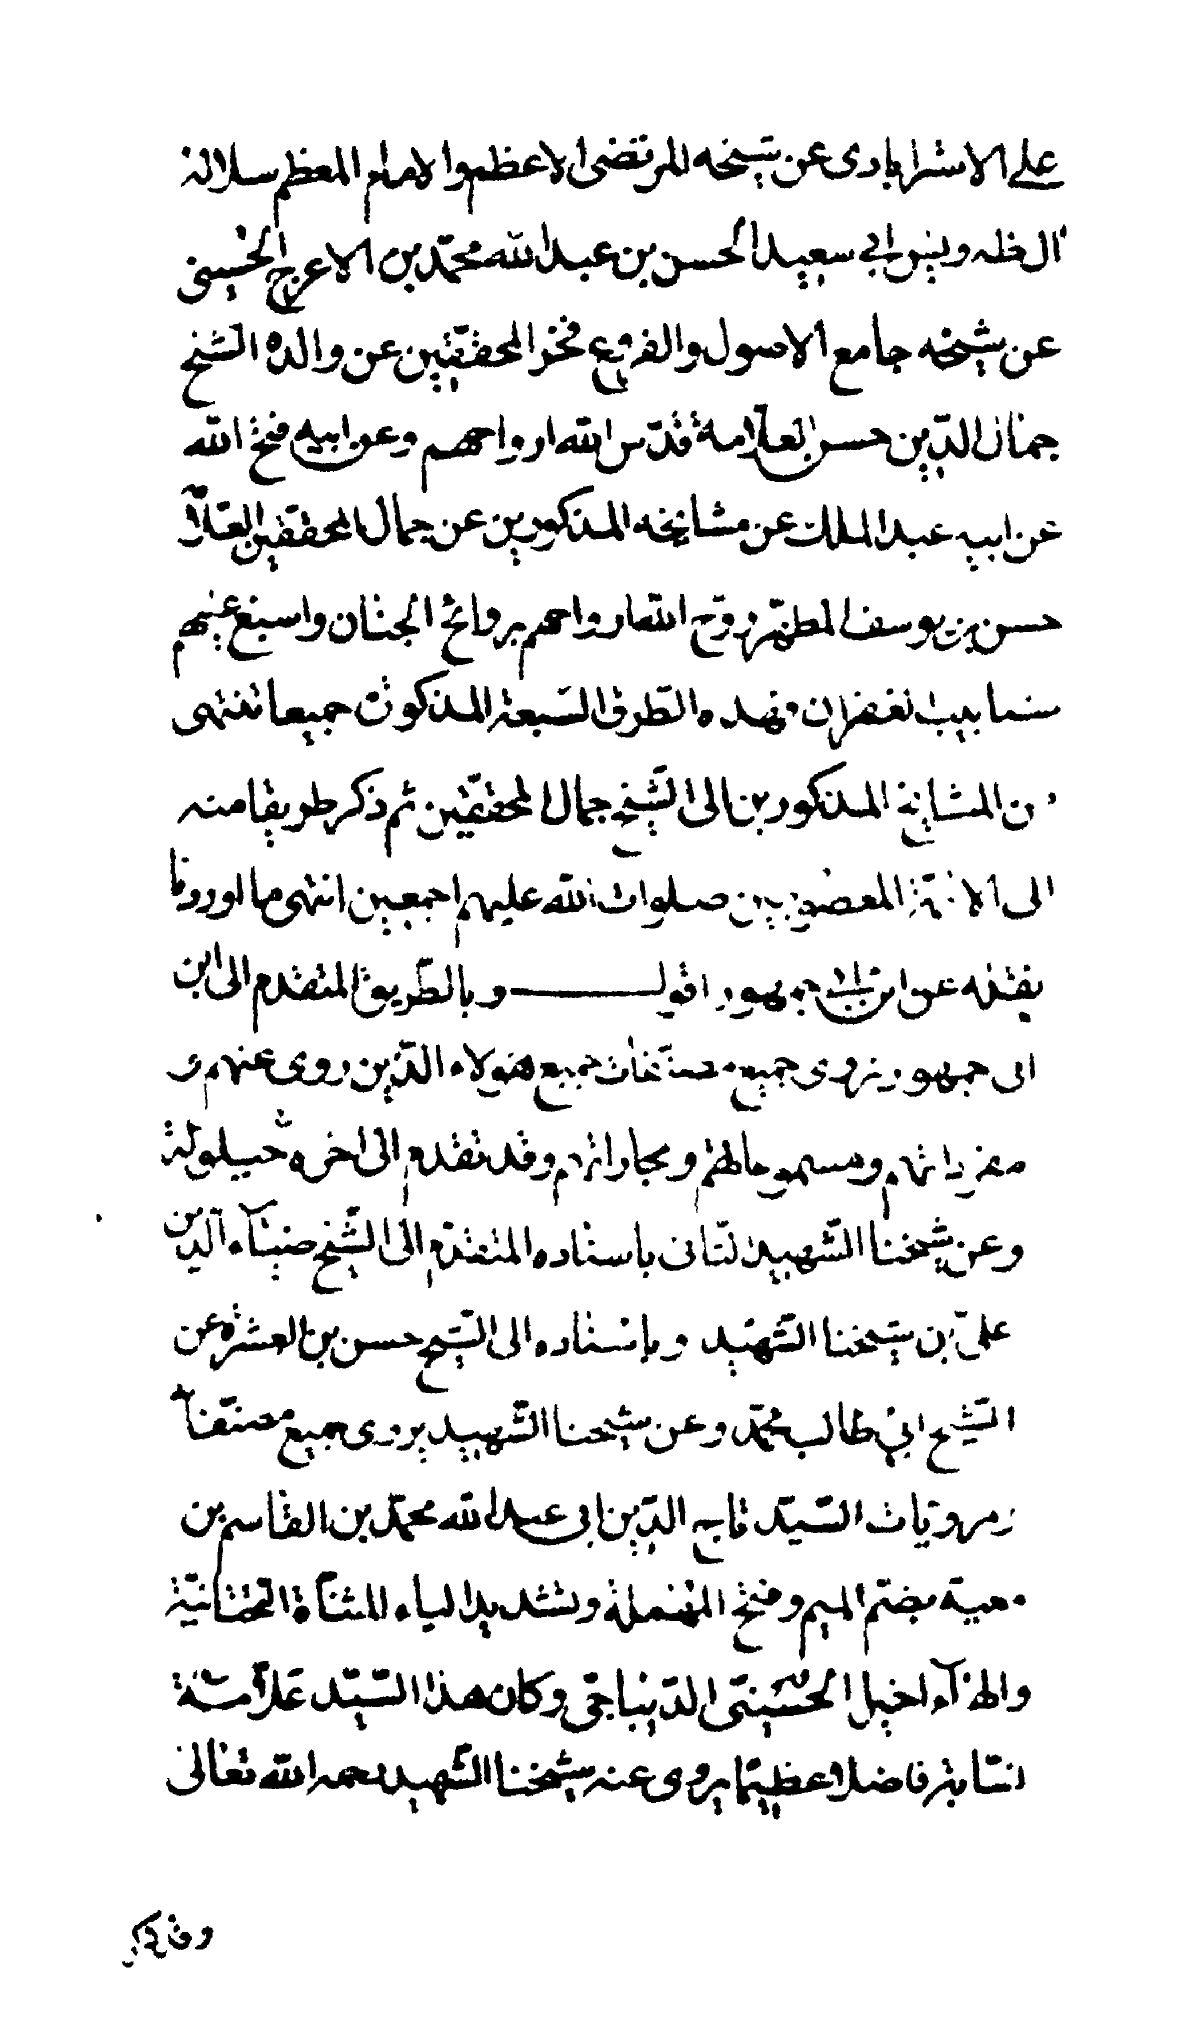 علي الاسترابادى عن شيخه المرتضى الاعظم والامام المعظم سلالة
ال طه ويس ابي سعيد الحسن بن عبد الله محمّد بن الاعرج الحسيني
عن شيخه جامع الاصول والفروع فخر المحققين عن والده الشيخ
جمال الدّين حسن العلّامة قدّس الله ارواحهم وعن ابيه فتح الله
عن ابيه عبد الملك عن مشايخه المذكورين عن جمال المحققين العلّا
حسن بن يوسف المطهّر روّح الله ارواحهم بروائح الجنان واسبغ عليهم
الغفران فهذه الطّرق السّبعة المذكورة جميعا تنتهى
من المشايخ المذكورين الى الشّيخ جمال المحققين ثم ذكر طريقا منه
الى الائمّة المعصومين صلوات الله عليهم اجمعين انتهى ما اوردنا
نقله عن ابن ابي جمهور اقول وبالطّريق المتقدم الى ابن
ابى جمهور نروى جميع مصنّفات جميع هؤلاء الّذين روى عنهم و
مقرواتهم ومسموعاتهم ومجازاتهم وقد تقدم الى اخره حيلولة
وعن شيخنا الشّهيد الثّانى باسناده المتقدّم الى الشّيخ ضياء الدّين
علىّ بن شيخنا الشّهيد وباسناده الى الشّيخ حسن بن العشرة عن
الشّيخ ابي طالب محمّد وعن شيخنا الشّهيد يروى جميع مصنّفات
ومرويّات السّيّد تاج الدّين ابى عبد الله محمّد بن القاسم بن
معيّة بضمّ الميم وفتح المهملة وتشديد الياء المثنّاة التّحتانيّة
والهاء اخيرا الحسينىّ الدّيباجىّ وكان هذا السّيّد علّامة
نسّابة فاضلا عظيما يروى عنه شيخنا الشّهيد رحمه الله تعالى
وقد ذكر